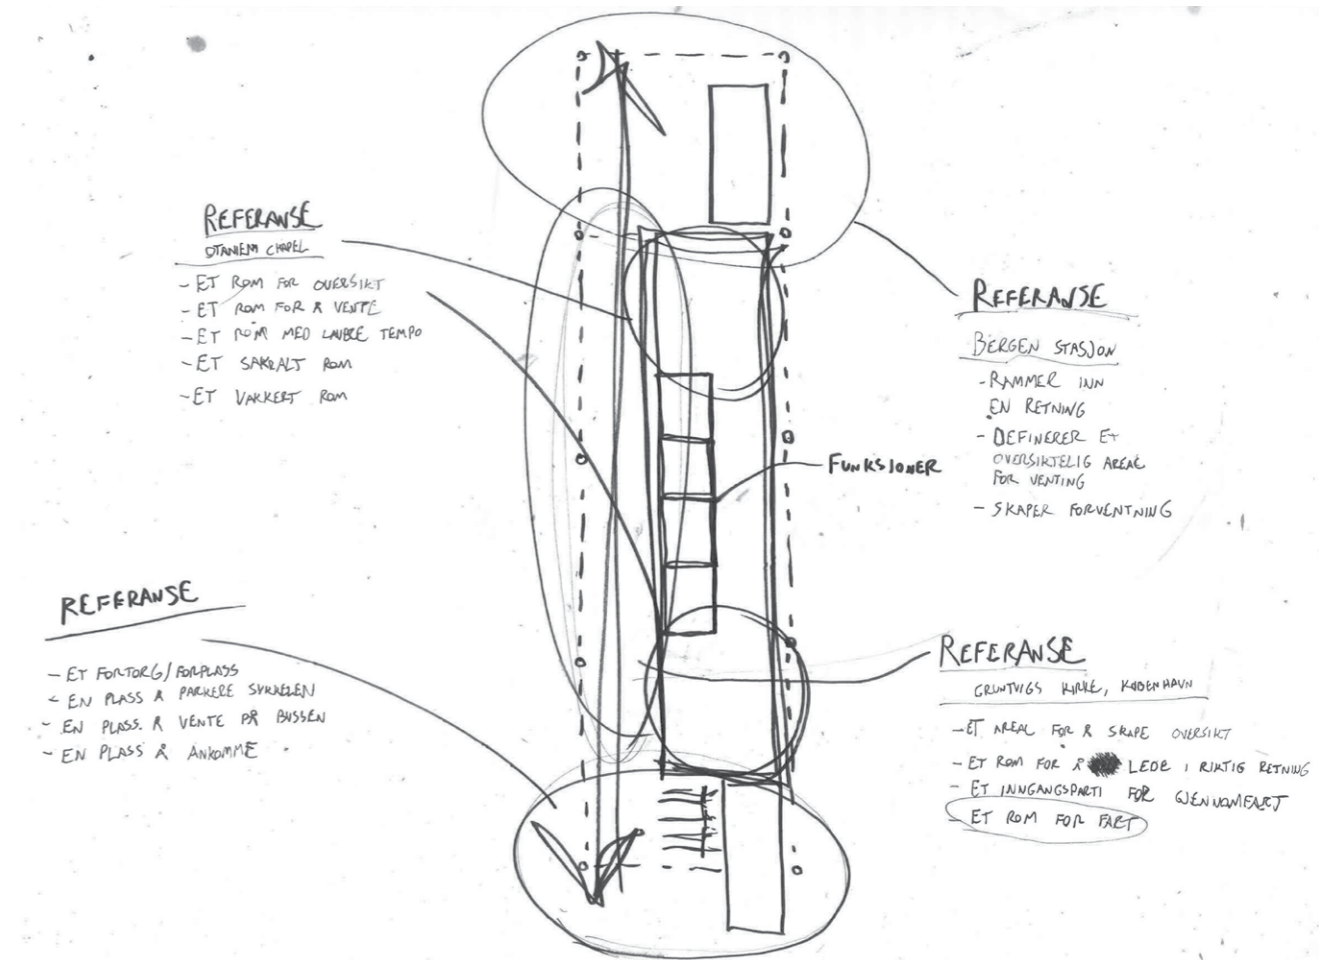 REFERANSE
OTANIEM CHAPEL
- ET ROM FOR OVERSIKT
- ET ROM FOR Å VENTE
- ET ROM MED LAVERE TEMPO
- ET SAKRALT ROM
- ET VAKKERT ROM
REFERANSE
BERGEN STASJON
- RAMMER INN
EN RETNING
- DEFINERER ET
OVERSIKTELIG AREAL
FOR VENTING
- SKAPER FORVENTNING
FUNKSJONER
REFERANSE
- ET FORTORG/FORPLASS
- EN PLASS Å PARKERE SYKKELEN
- EN PLASS Å VENTE PÅ BUSSEN
- EN PLASS Å ANKOMME
REFERANSE
GRUNTVIGS KIRKE, KØBENHAVN
- ET AREAL FOR Å SKAPE OVERSIKT
- ET ROM FOR Å LEDE I RIKTIG RETNING
- ET INNGANGSPARTI FOR GJENNOMFART
- ET ROM FOR FART